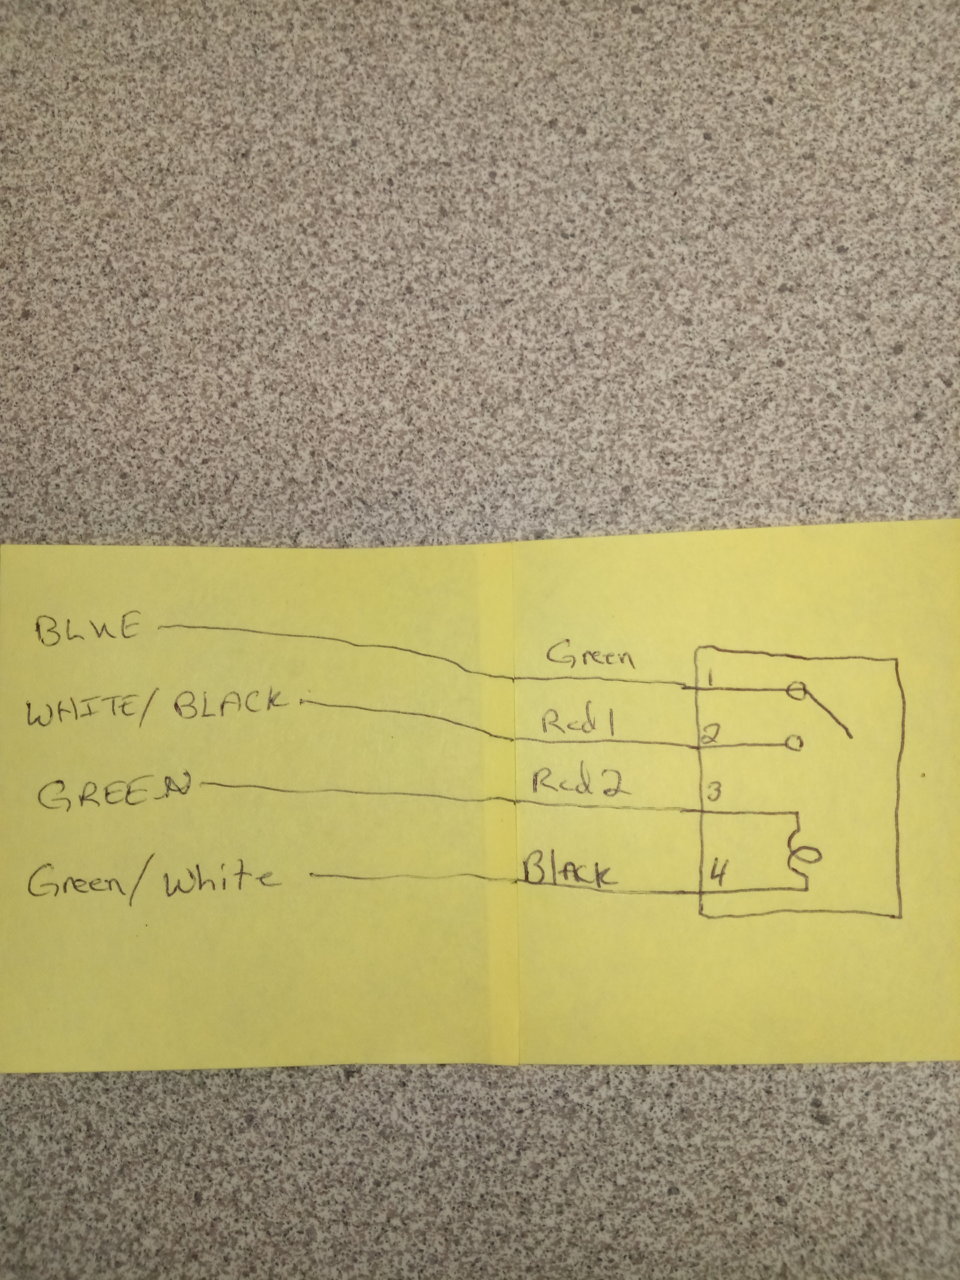 BLUE
Green
1
WHITE/BLACK
Red 1
2
GREEN
Red 2
3
Green/White
Black
4